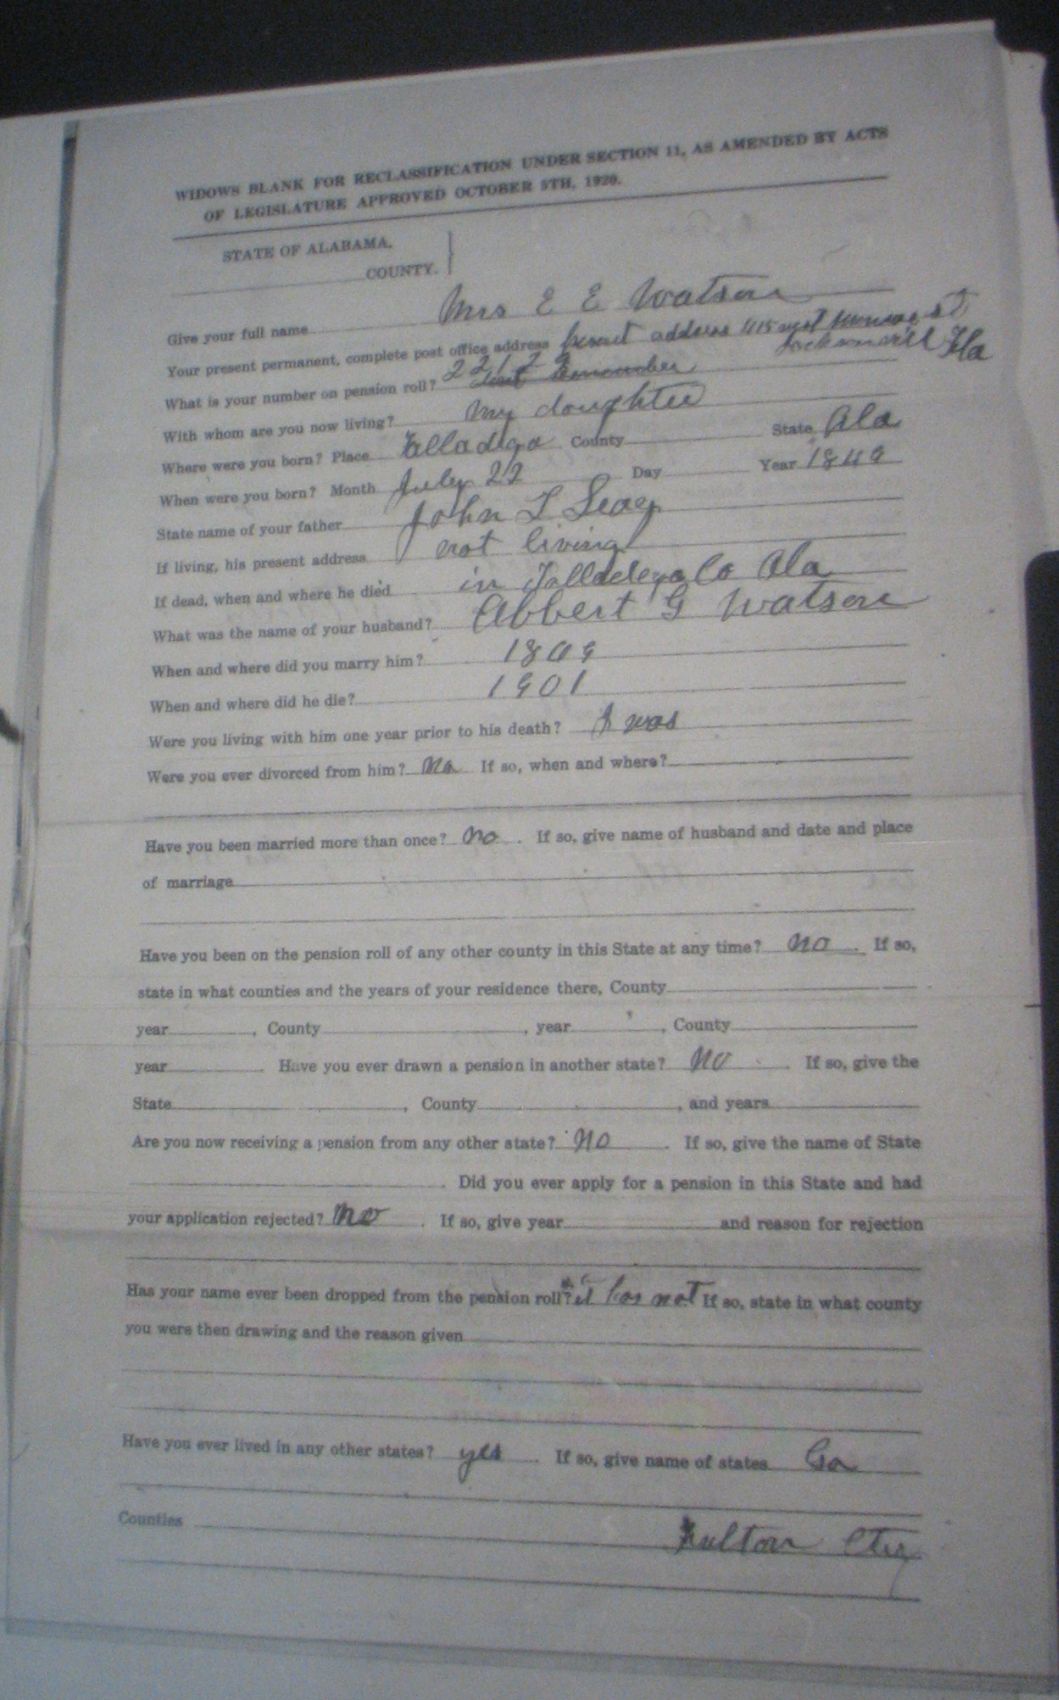 WIDOWS BLANK FOR RECLASSIFICATION UNDER SECTION 11, AS AMENDED BY ACTS
OF LEGISLATURE APPROVED OCTOBER 5TH, 1920.
STATE OF ALABAMA,
COUNTY.
Give your full name Mrs E E Watson
Your present permanent, complete post office address present address 1115 west st
Jacksonville Fla
What is your number on pension roll? 22122 dont Remember
With whom are you now living? My doughter
Where were you born? Place Talladega County State Ala
When were you born? Month July 22 Day Year 1849
State name of your father John T Seay
If living, his present address not living
If dead, when and where he died in Talladega Co Ala
What was the name of your husband? Abbert G Watson
When and where did you marry him? 1869
When and where did he die? 1901
Were you living with him one year prior to his death? I was
Were you ever divorced from him? No If so, when and where?
Have you been married more than once? No . If so, give name of husband and date and place
of marriage
Have you been on the pension roll of any other county in this State at any time? No . If so,
state in what counties and the years of your residence there, County
year , County , year , County
year . Have you ever drawn a pension in another state? No . If so, give the
State , County , and years
Are you now receiving a pension from any other state? No . If so, give the name of State
. Did you ever apply for a pension in this State and had
your application rejected? No . If so, give year and reason for rejection
Has your name ever been dropped from the pension roll? it has not If so, state in what county
you were then drawing and the reason given
Have you ever lived in any other states? yes . If so, give name of states Ga
Counties Fulton Cty